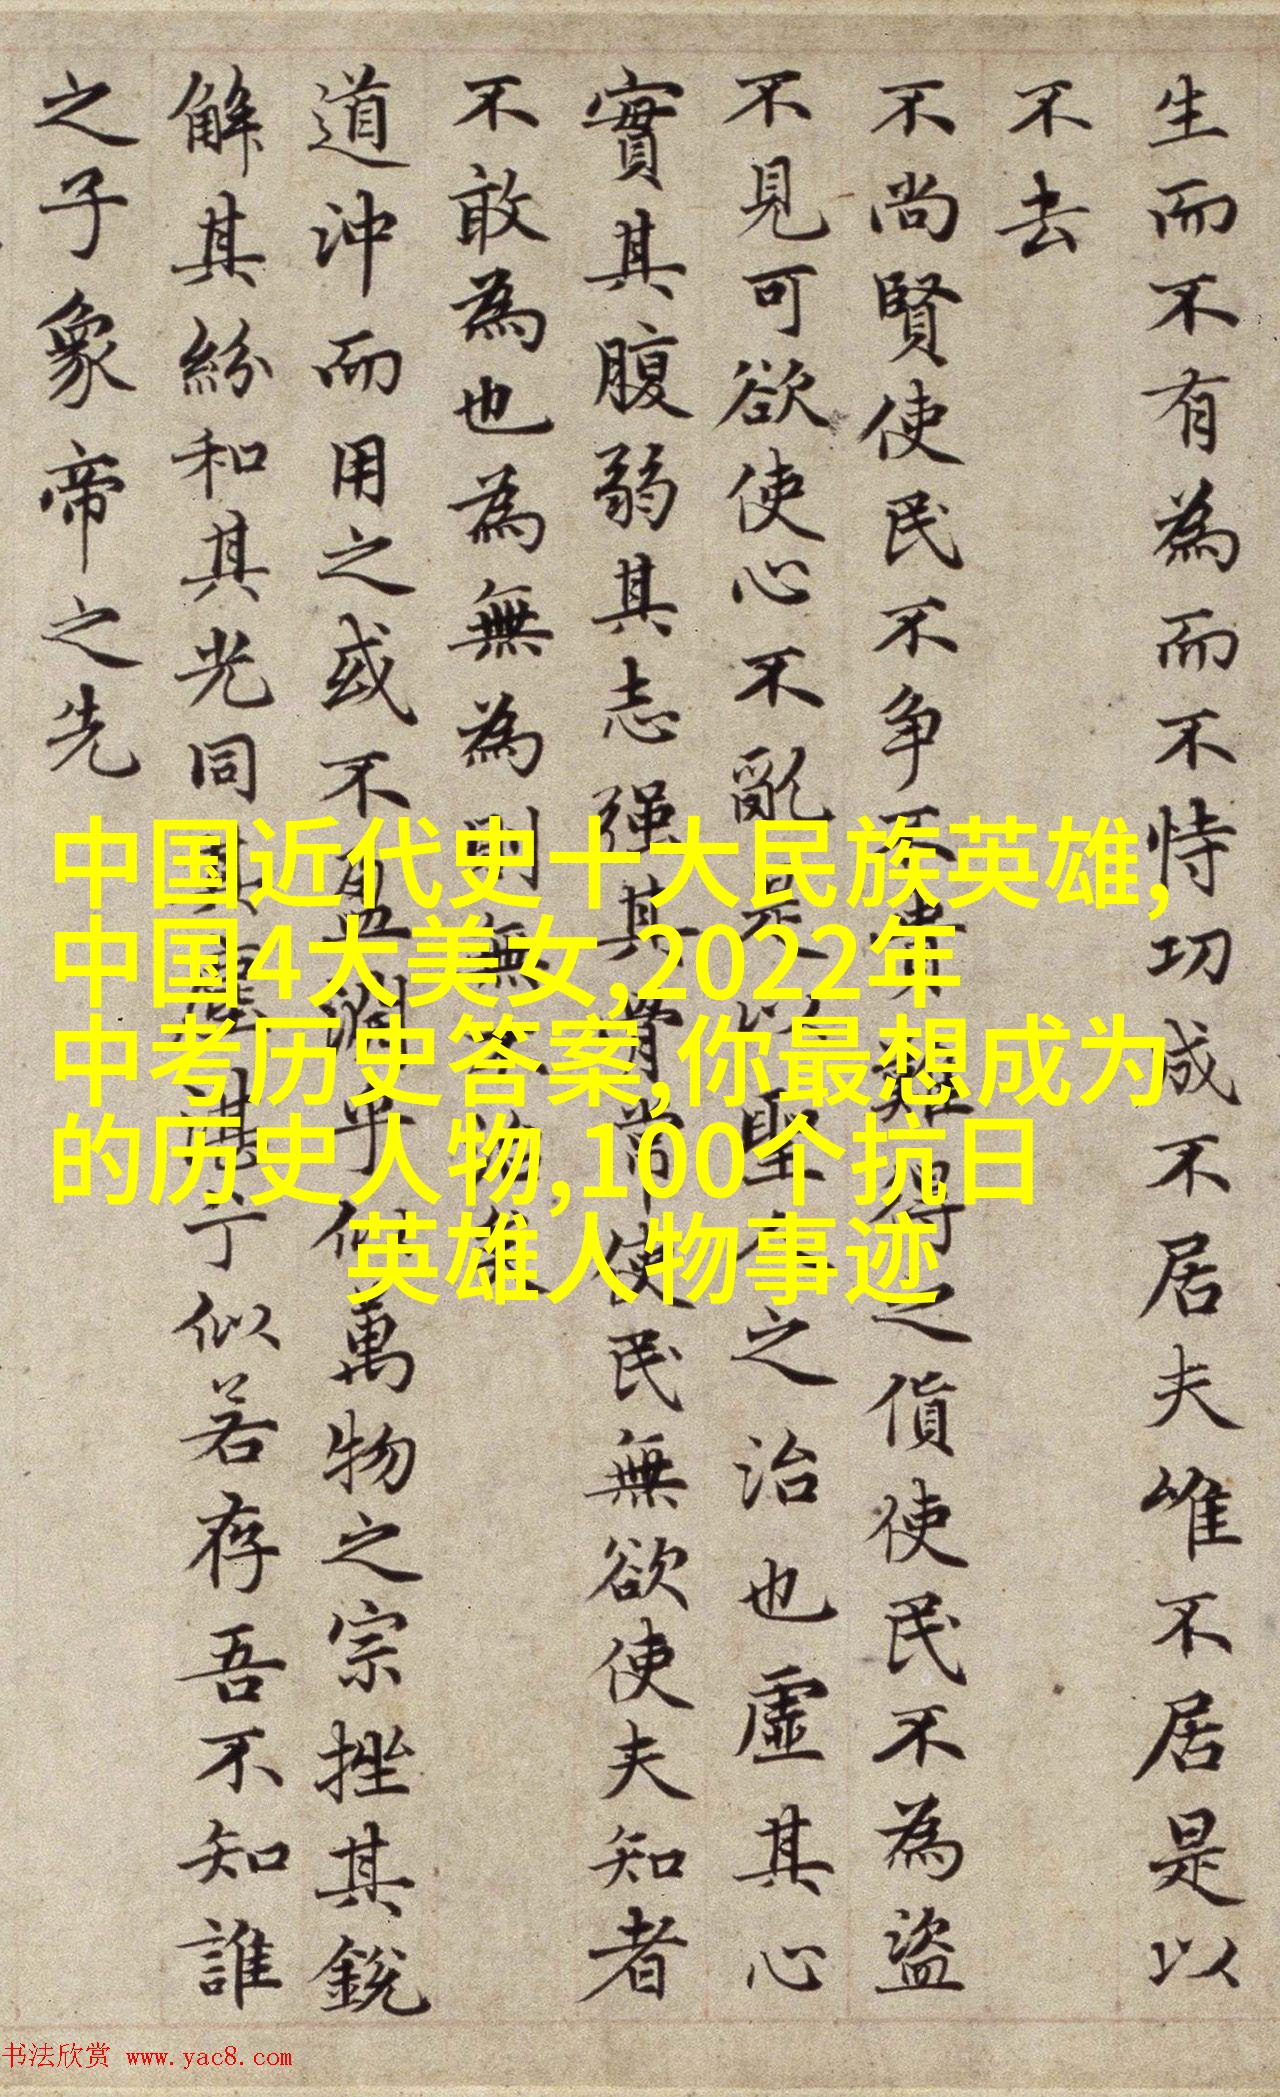 生而不有為而不恃功成不居夫唯不居是以
不去
不尚賢使民不争不貴難得之貨使民不為盜
不見可欲使心不亂是以聖人之治也虛其心
實其腹弱其志强其骨常使民無欲使夫知者
不敢為也為無為則無不治矣
道沖而用之或不盈淵乎似萬物之宗挫其銳
解其紛和其光同其塵湛兮似若存吾不知誰
之子象帝之先
中国近代史十大民族英雄,
中国4大美女,2022年
中考历史答案,你最想成为
的历史人物,100个抗日
英雄人物事迹
书法欣赏 www.yac8.com